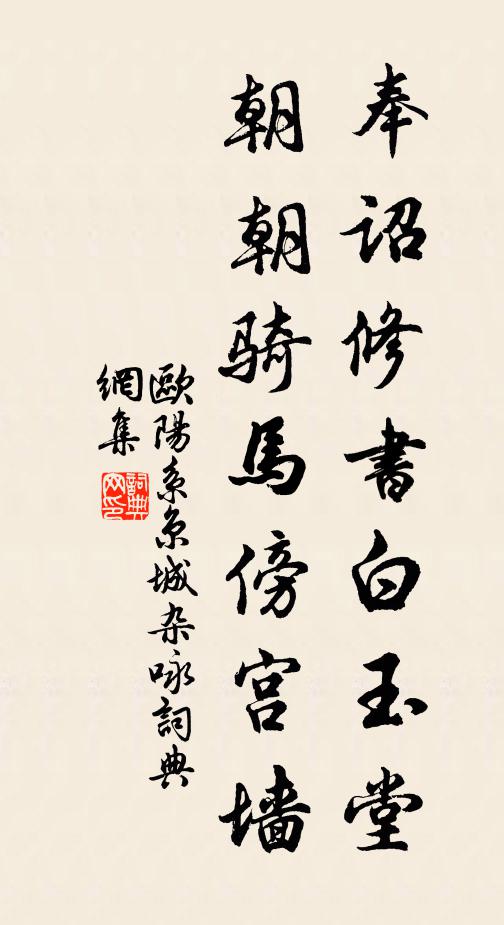 奉詔修書白玉堂
朝朝騎馬傍宮墻
歐陽系京城杂咏詞典
網集
詞典
网印